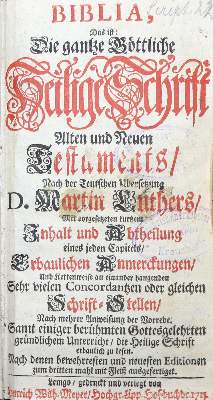 BIBLIA,
Das ist:
Die gantze Göttliche
Heilige Schrift
Alten und Neuen
Testaments/
Nach der Teutschen Übersetzung
D. Martin Luthers/
Mit vorgesetzten kurtzen
Inhalt und Abtheilung
eines jeden Capitels/
Erbaulichen Anmerckungen/
Und Kettenweise an einander hangenden
Sehr vielen Concordantzen oder gleichen
Schrift-Stellen/
Nach mehrer Anweisung der Vorrede,
Samt einiger berühmten Gottesgelehrten
gründlichem Unterricht/ die Heilige Schrift
erbaulich zu lesen.
Nach denen bewehrtesten und neuesten Editionen
zum dritten mahl mit Fleiß ausgefertiget.
Lemgo/ gedruckt und verlegt von
Henrich Wilh. Meyer/ Hochgr. Lipp. Hofbuchdr.